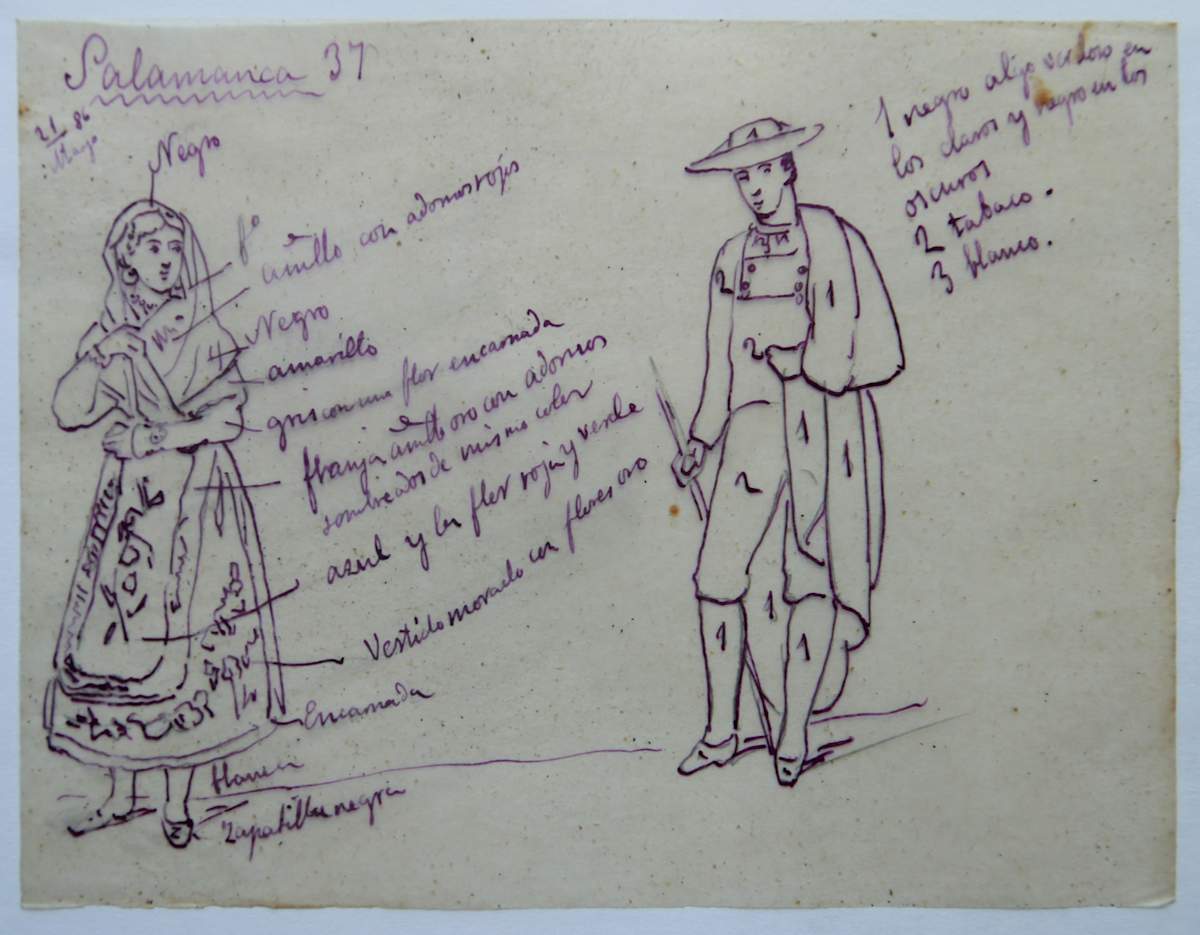 Salamanca 37
21 86
Mayo
Negro
fo
anillo con adornos rojos
Negro
amarillo
gris con una flor encarnada
franja anillo oro con adornos
sombreados de mismo color
azul y la flor roja y verde
Vestido morado con flores oro
Encarnada
blanca
Zapatilla negra
1 negro algo verdoso en
los claros y negro en los
oscuros
2 tabaco.
3 blanco.
1
1
2
1
2
1
1
2
1
1
1